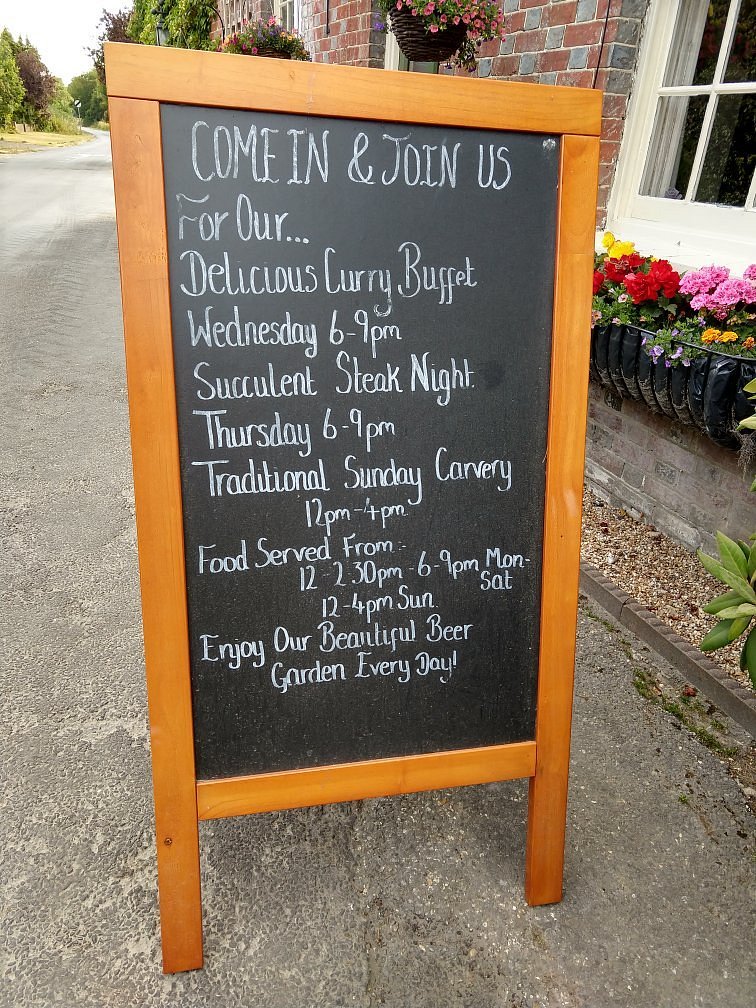 COME IN & JOIN US
For Our...
Delicious Curry Buffet
Wednesday 6-9pm
Succulent Steak Night.
Thursday 6-9pm
Traditional Sunday Carvery
12pm-4pm
Food Served From:-
12-2.30pm-6-9pm Mon-
Sat
12-4pm Sun.
Enjoy Our Beautiful Beer
Garden Every Day!